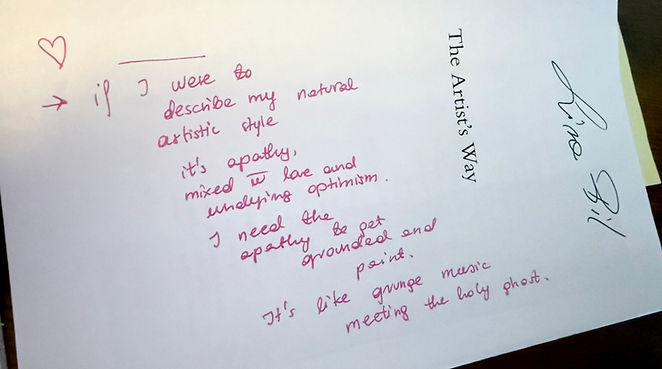 → if I were to
describe my natural
artistic style
it's apathy,
mixed w love and
undying optimism.
I need the
apathy to get
grounded and
paint.
It's like grunge music
meeting the holy ghost.
The Artist's Way